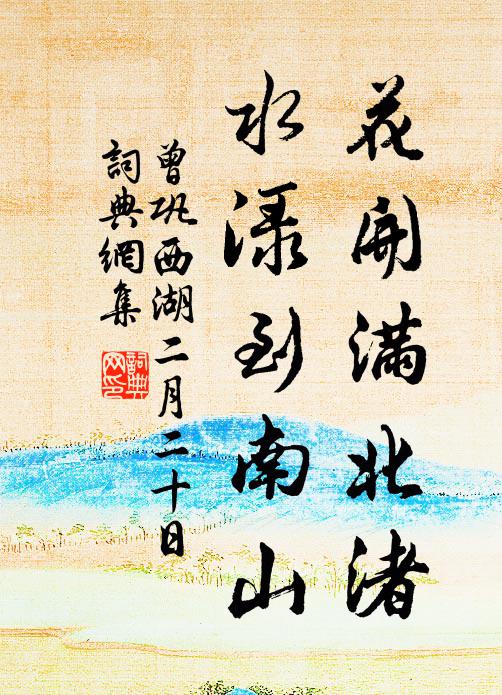 花開滿北渚
水渌到南山
曾巩西湖二月二十日
詞典網集
詞典网印